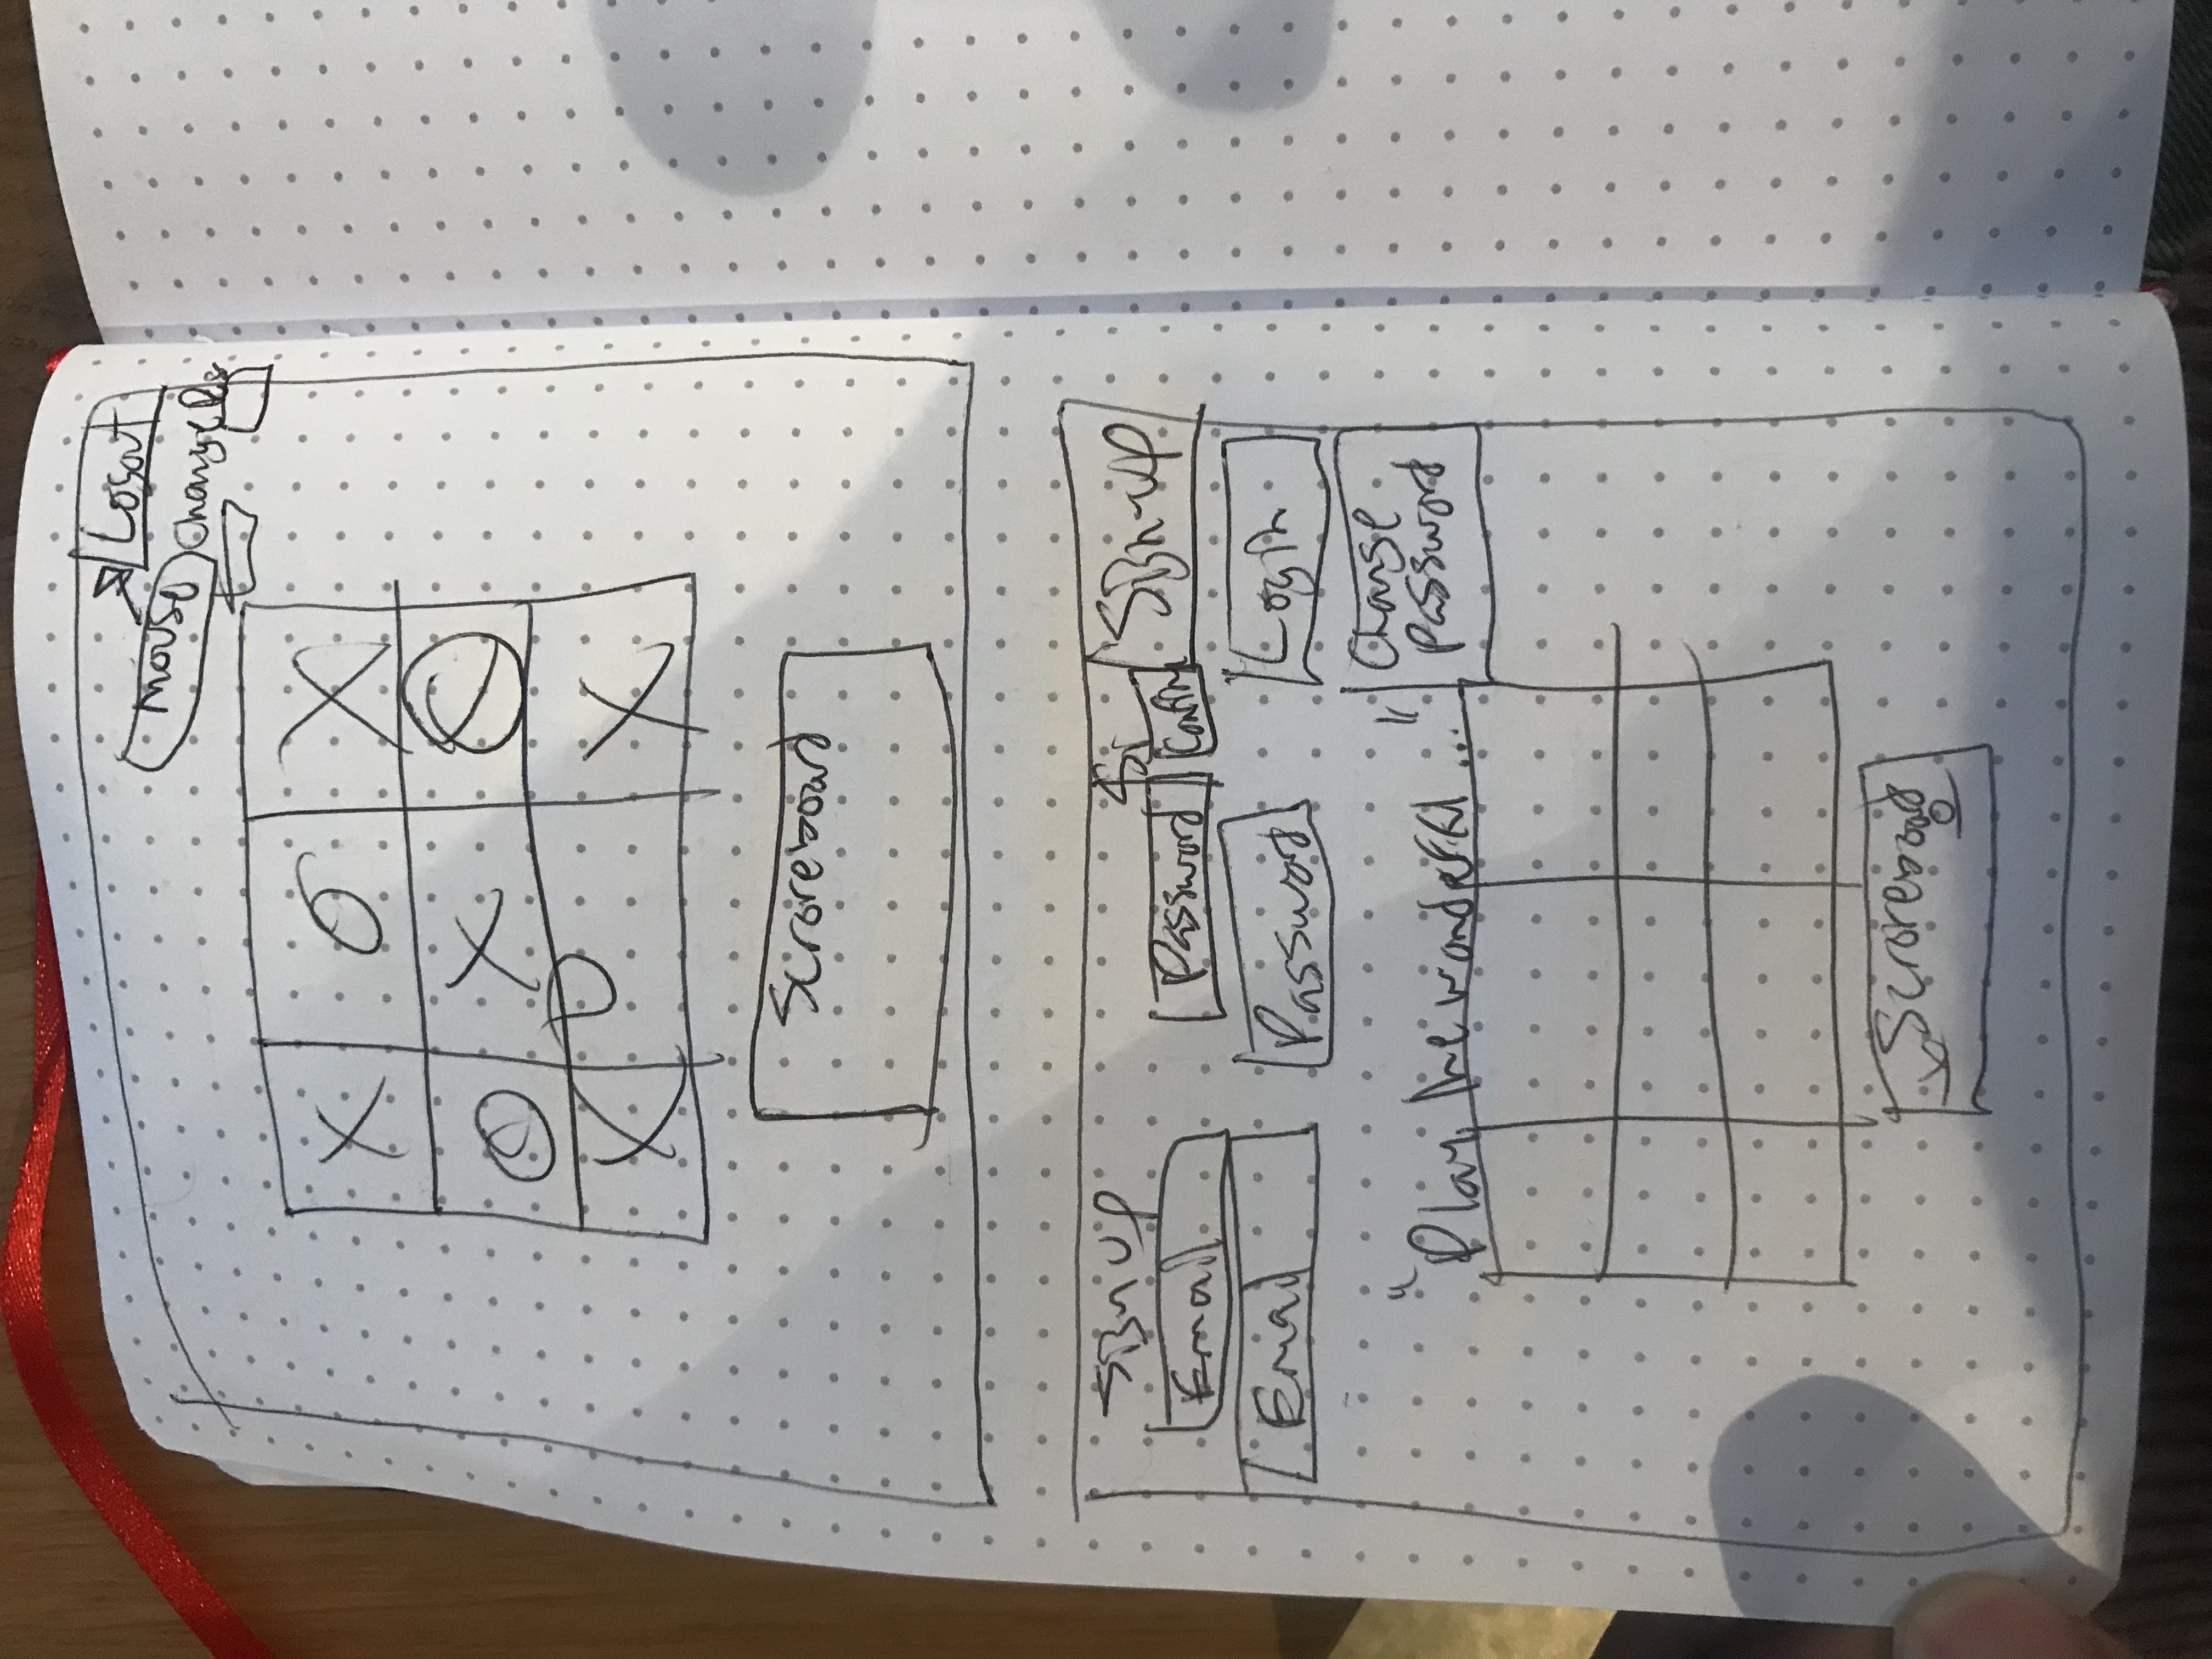 Logout
mouse
Change Ps
X O X
O X O
X O X
Scroreboard
Sign up
Si
Sign-up
Email
Password
Confirm
Email
Password
Login
Change
Password
"Play the wonderful ..."
Scroreboard
X
O